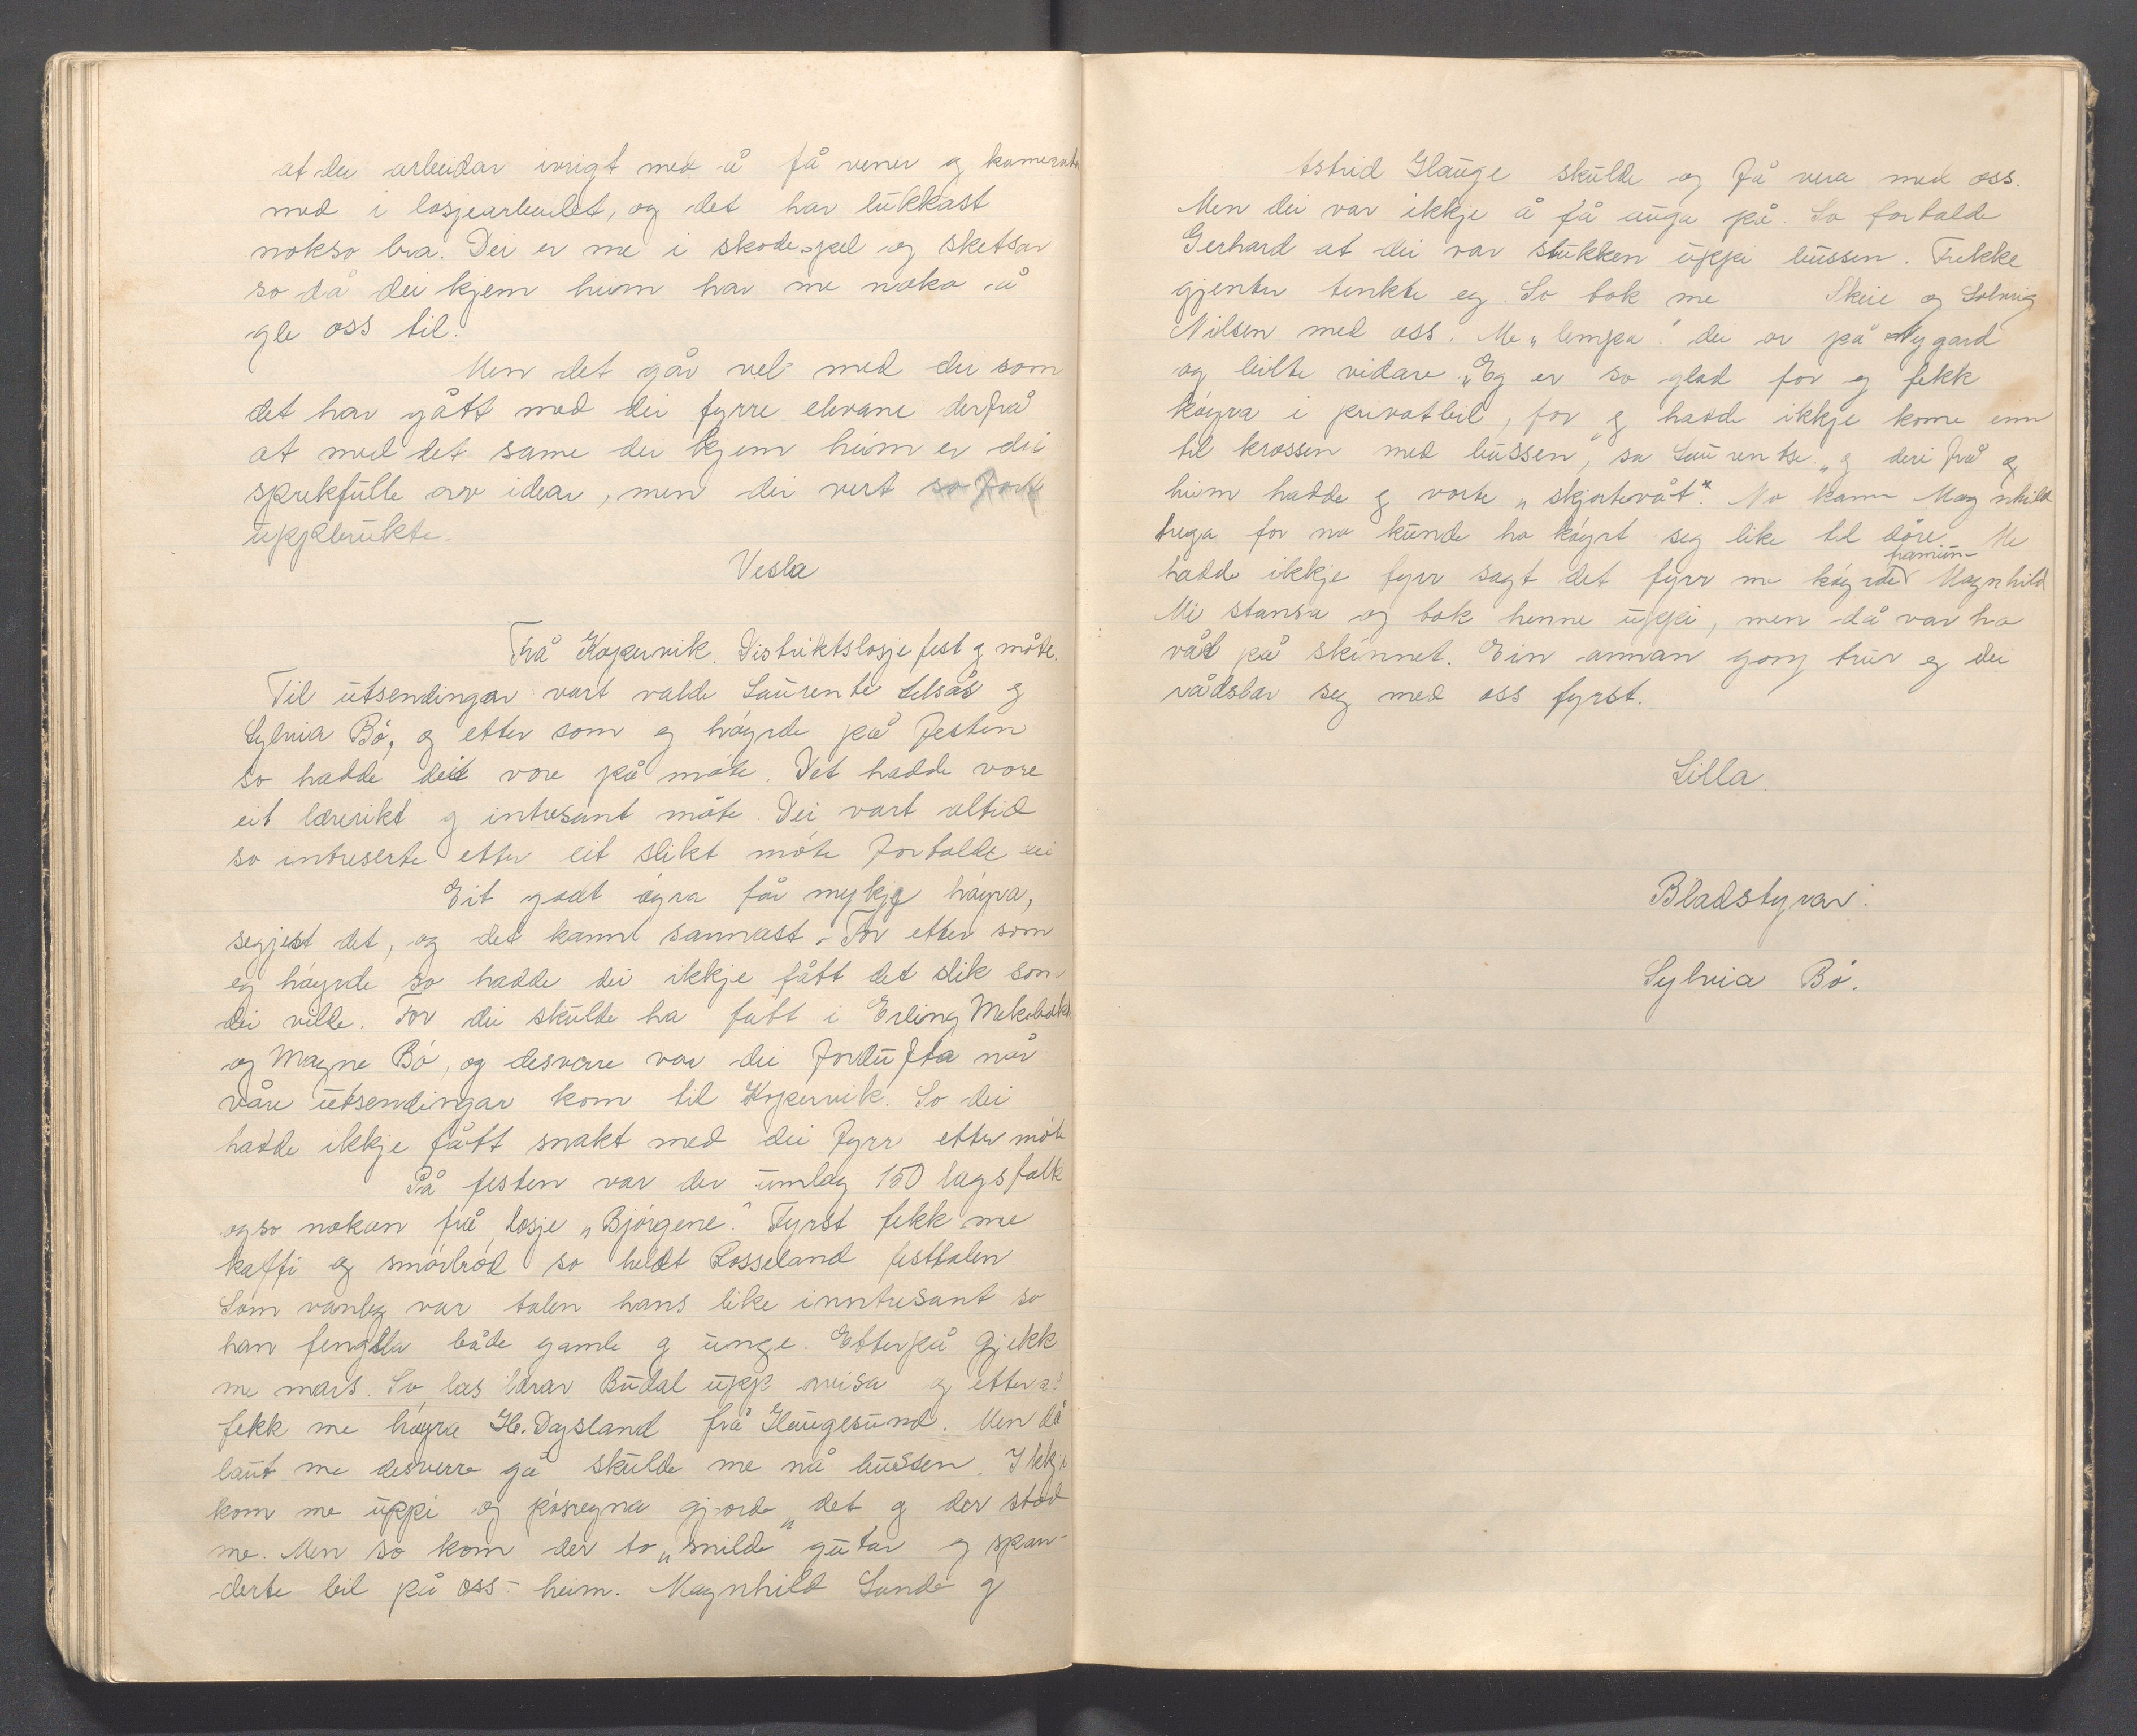 at dei arbeidar ivrigt med å få vener og kamerater
med i losjearbeidet, og det har lukkast
nokso bra. Dei er me i skodespel og sketsar
so då dei kjem heim har me noko å
gle oss til.
Men det går vel med dei som
det har gått med dei fyrre elevane derfrå
at med det same dei kjem heim er dei
sprekfulle av idear, men dei vert so fort
uppbrukte.
Vesla
Frå Kopervik. Distriktslosjefest og møte.
Til utsendingar vart valde Laurentse og
Sylvia Bø, og etter som eg høyrde på festen
so hadde dei vore på møte. Det hadde vore
eit lærerikt og intresant møte. Dei vart altid
so intreserte etter eit slikt møte fortalde dei
Eit godt øyra får mykje høyra,
segjest det, og det kann sannast. For etter som
eg høyrde so hadde dei ikkje fått det slik som
dei ville. For dei skulde ha fatt i Erling
og Magne Bø, og desverre var dei fordufta når
våre utsendingar kom til Kopervik. So dei
hadde ikkje fått snakt med dei fyrr etter møte
På festen var der umlag 150 lagsfolk
ogso nokon frå losje „Bjørgene." Fyrst fekk me
kaffi og smørbrød so heldt Rosseland festtalen
Som vanleg var talen hans like inntresant so
han fengsla både gamle og unge. Etterpå gjekk
me mars. So las lærar Budal upp avisa og etter at
fekk me høyra Hr. Dagsland frå Haugesund. Men då
laut me desverre gå skulde me nå bussen. Ikkje
kom me uppi og pøsregna gjorde det og der stod
me. Men so kom der to „snilde" gutar og span-
derte bil på oss heim. Magnhild Sunde og
Astrid Hauge skulde og få vera med oss.
Men dei var ikkje å få auga på. So fortalde
Gerhard at dei var stukken uppi bussen. Frekke
gjenter tenkte eg. So tok me Skeie og Solveig
Nilsen med oss. Me „lempa" dei av på Nygard
og bilte vidare. „Eg er so glad for eg fekk
køyra i privatbil, for eg hadde ikkje kome enn
til krossen med bussen", sa Laurentse „og deri frå og
heim hadde eg vorte „skjortevåt". No kann Magnhild
trega for no kunde ho køyrt seg like til døre. Me
hadde ikkje fyrr sagt det fyrr me køyrde framum- Magnhild
Me stansa og tok henne uppi, men då var ho
våt på skinnet. Ein annan gong trur eg dei
rådslar seg med oss fyrst.
Lilla.
Bladstyrar:
Sylvia Bø.